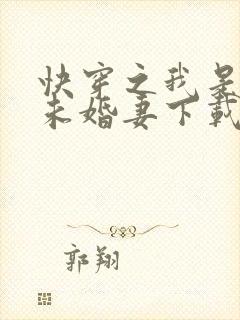 快穿之我是
未婚妻下載
郭翔